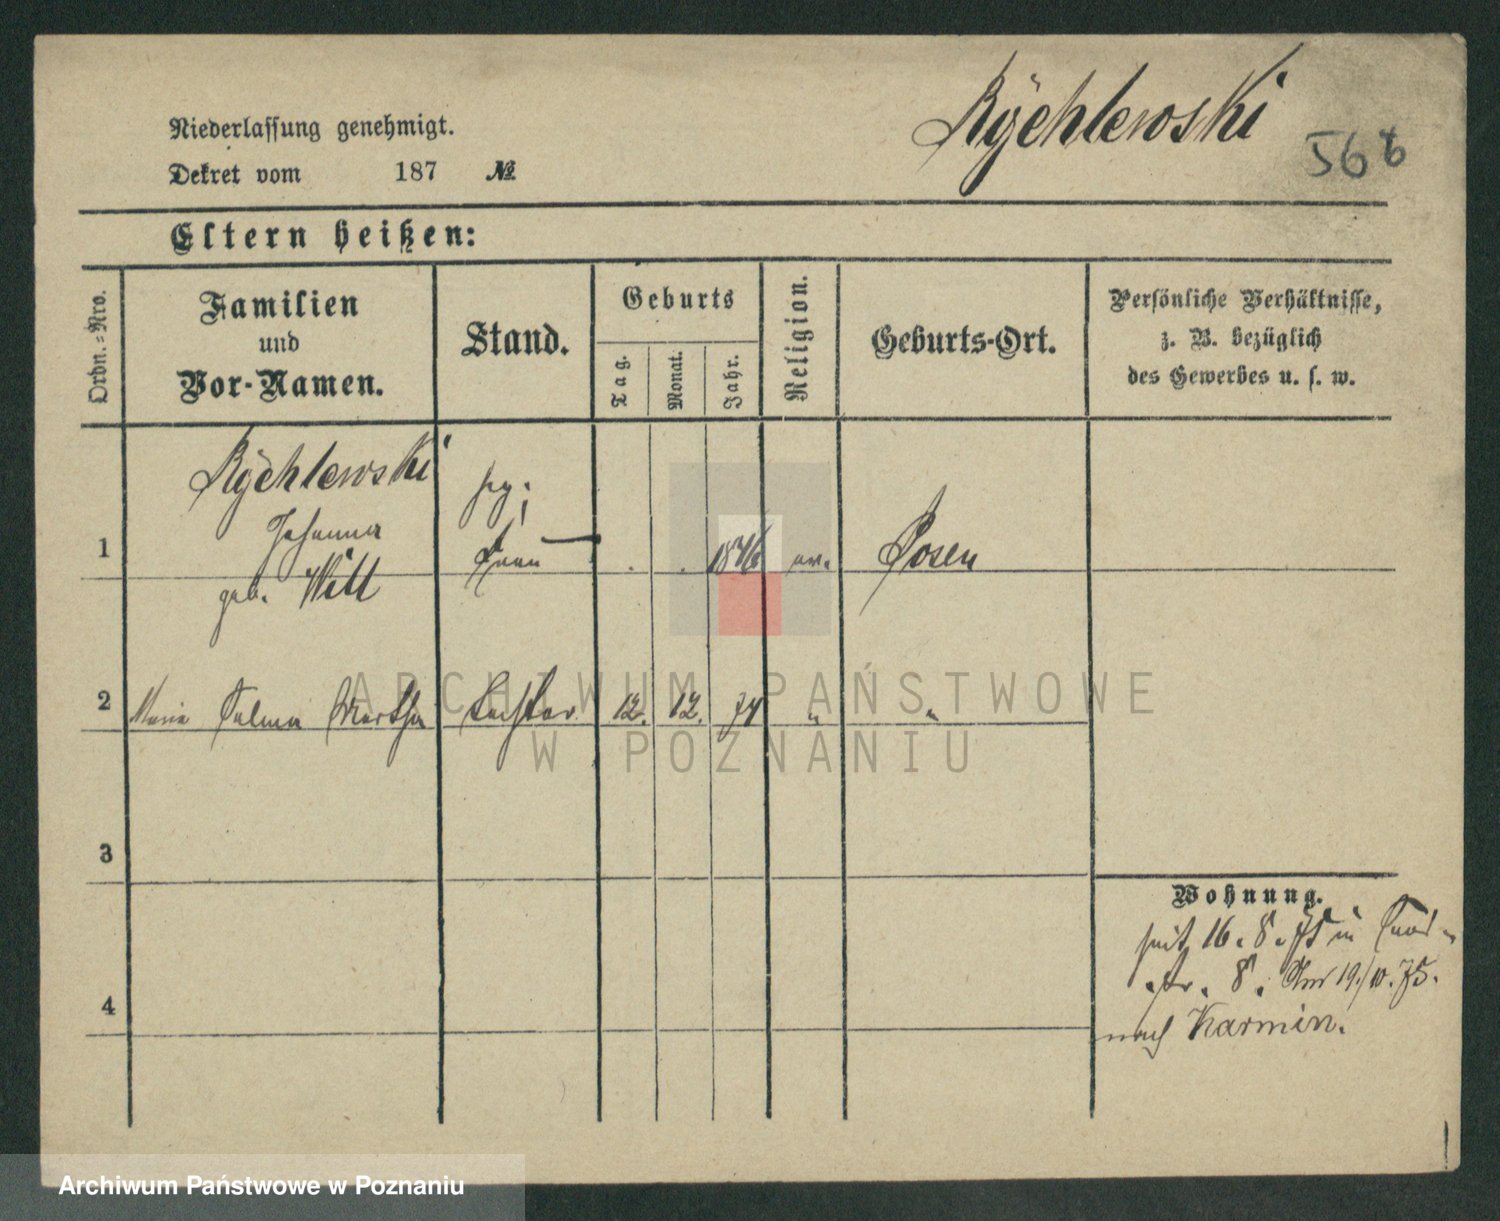 Rÿchlewski
566
Niederlassung genehmigt.
Dekret vom 187 №
Eltern heißen:
Ordn.-Nro.
Familien
und
Vor-Namen.
Stand.
Geburts
Tag.
Monat.
Jahr.
Religion.
Geburts-Ort.
Persönliche Verhältnisse,
z. B. bezüglich
des Gewerbes u. s. w.
Rÿchlewski
Johanna
geb. Witt
1
Frau
1846
ev.
Posen
2 Maria Selma Martha Tochter 12. 12. 74 " "
3
4
Wohnung.
seit 16. 8. 75 in
str. 8. 19./10. 75.
nach Karmin.
ARCHIWUM PAŃSTWOWE
W POZNANIU
Archiwum Państwowe w Poznaniu